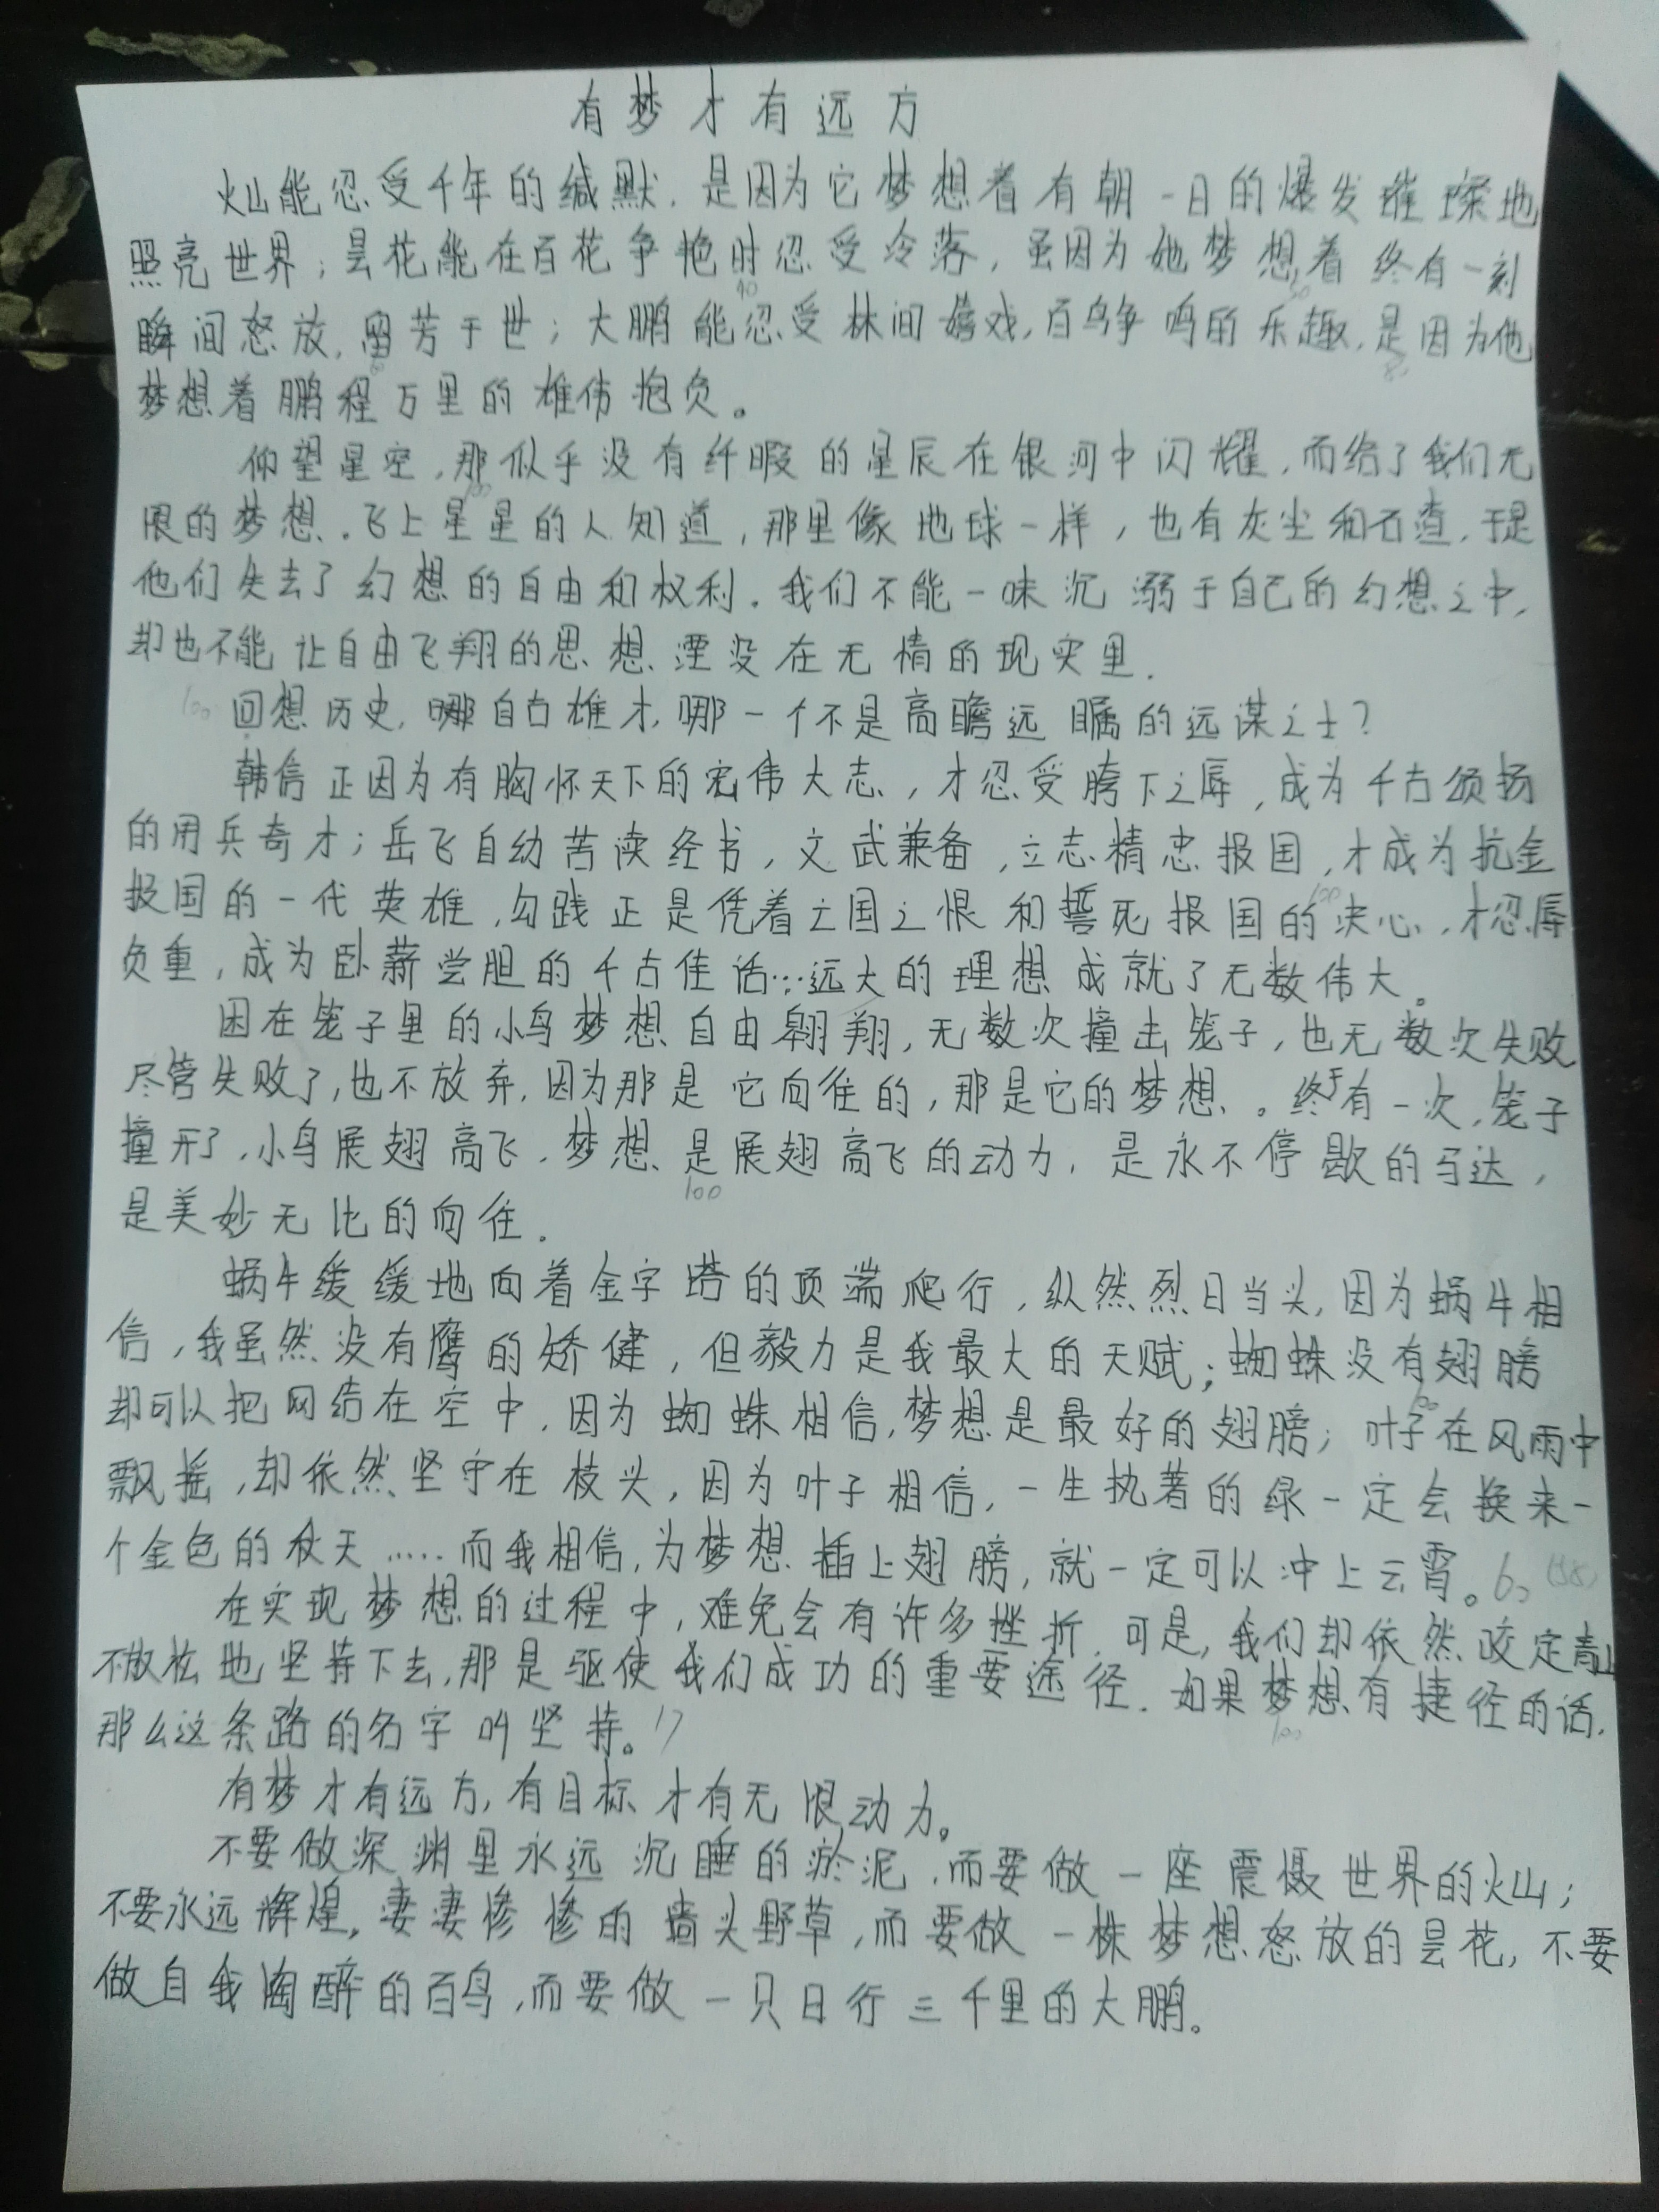 有梦才有远方
火山能忍受千年的缄默，是因为它梦想着有朝一日的爆发璀璨地
照亮世界；昙花能在百花争艳时忍受冷落，虽因为她梦想着终有一刻
瞬间怒放，留芳于世；大鹏能忍受林间嬉戏，百鸟争鸣的乐趣，是因为他
梦想着鹏程万里的雄伟抱负。
仰望星空，那似乎没有纤暇的星辰在银河中闪耀，而给了我们无
限的梦想。飞上星星的人知道，那里像地球一样，也有灰尘和石渣，于是
他们失去了幻想的自由和权利。我们不能一味沉溺于自己的幻想之中，
却也不能让自由飞翔的思想湮没在无情的现实里。
回想历史，哪自古雄才，哪一个不是高瞻远瞩的远谋之士？
韩信正因为有胸怀天下的宏伟大志，才忍受胯下之辱，成为千古颂扬
的用兵奇才；岳飞自幼苦读经书，文武兼备，立志精忠报国，才成为抗金
报国的一代英雄，勾践正是凭着亡国之恨和誓死报国的决心，才忍辱
负重，成为卧薪尝胆的千古佳话…远大的理想成就了无数伟大。
困在笼子里的小鸟梦想自由翱翔，无数次撞击笼子，也无数次失败
尽管失败了，也不放弃，因为那是它向往的，那是它的梦想。终于有一次，笼子
撞开了，小鸟展翅高飞，梦想是展翅高飞的动力，是永不停歇的马达，
是美妙无比的向往。
蜗牛缓缓地向着金字塔的顶端爬行，纵然烈日当头，因为蜗牛相
信，我虽然没有鹰的矫健，但毅力是我最大的天赋；蜘蛛没有翅膀
却可以把网结在空中，因为蜘蛛相信，梦想是最好的翅膀；叶子在风雨中
飘摇，却依然坚守在枝头，因为叶子相信，一生执著的绿一定会换来一
个金色的秋天……而我相信，为梦想插上翅膀，就一定可以冲上云霄。
在实现梦想的过程中，难免会有许多挫折，可是，我们却依然咬定青山
不放松地坚持下去，那是驱使我们成功的重要途径。如果梦想有捷径的话，
那么这条路的名字叫坚持。17
有梦才有远方，有目标才有无限动力。
不要做深渊里永远沉睡的淤泥，而要做一座震慑世界的火山；
不要永远辉煌，凄凄惨惨的墙头野草，而要做一株梦想怒放的昙花，不要
做自我陶醉的百鸟，而要做一只日行三千里的大鹏。